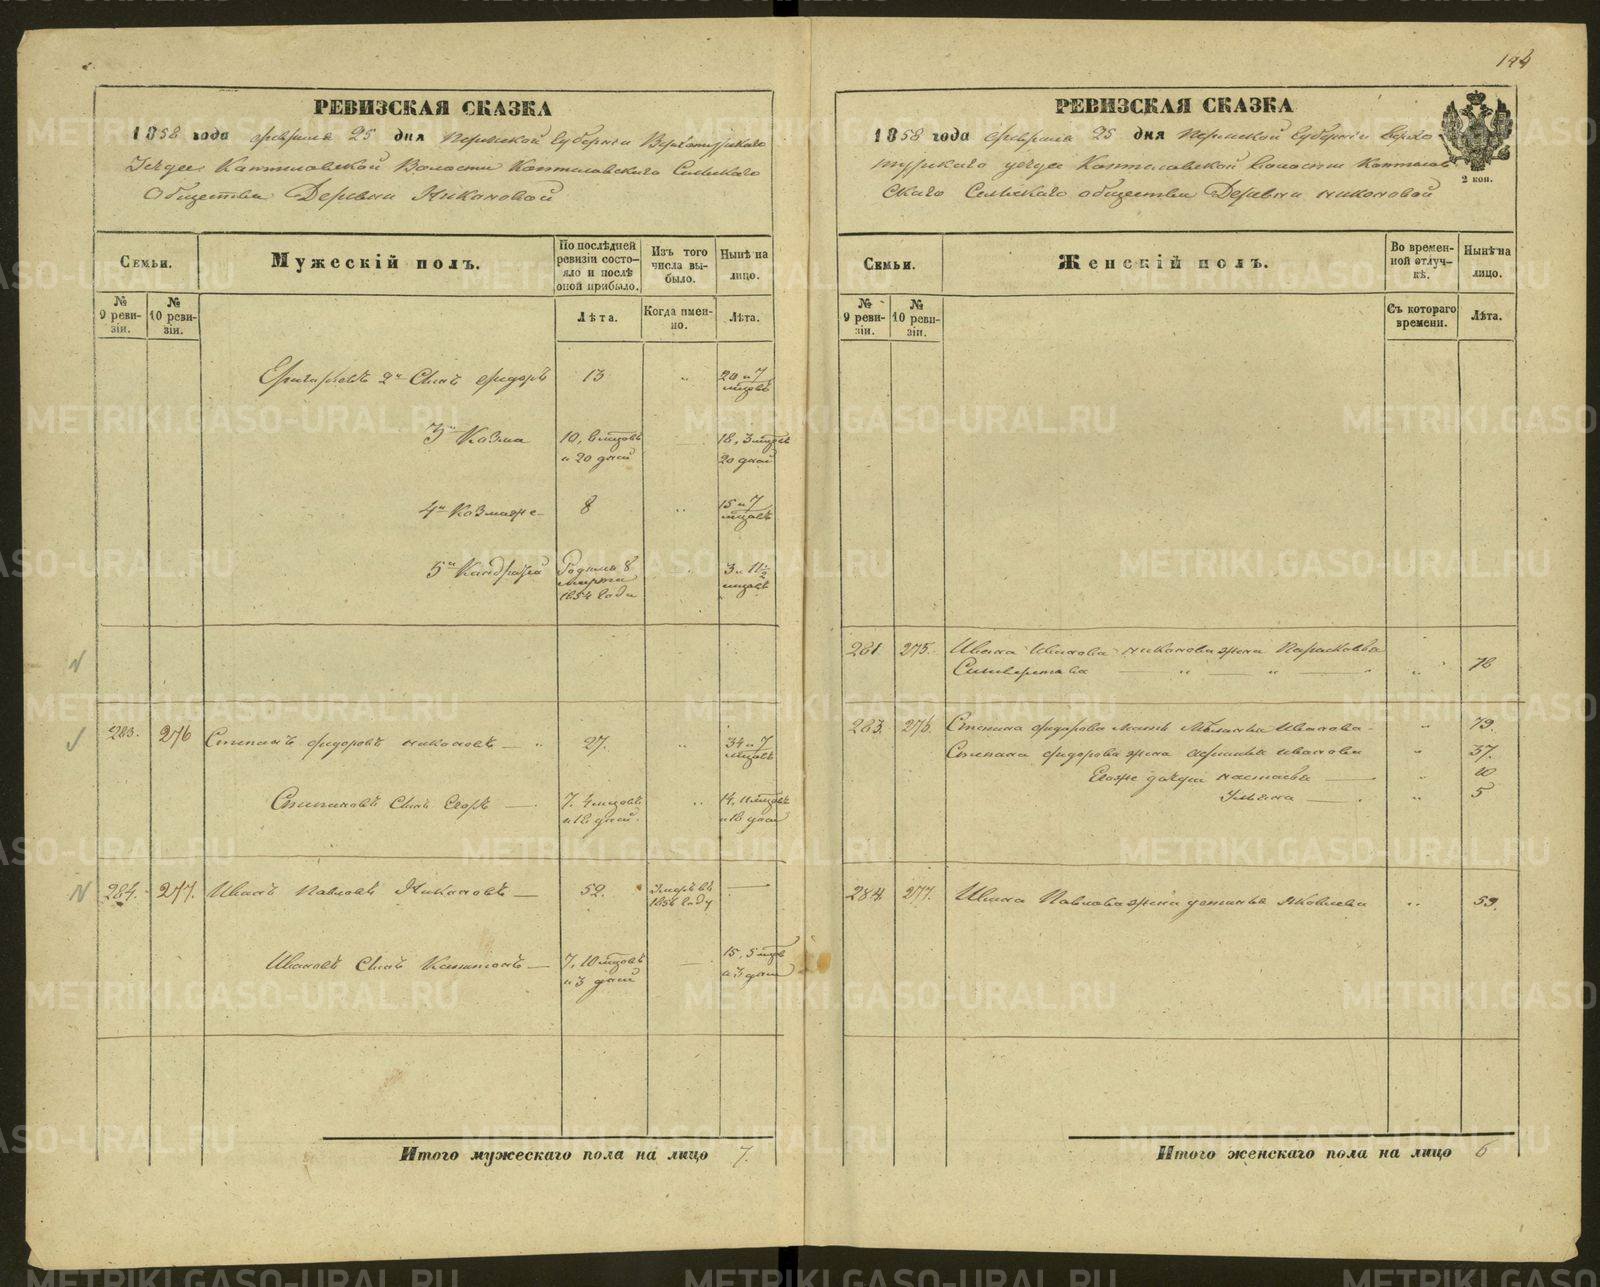 144
РЕВИЗСКАЯ СКАЗКА
1858 года февраля 25 дня Пермской Губернiи Верхотурскаго
Уезда Коптеловской Волости Коптеловскаго Сельскаго
Общества Деревни Никоновой
Семьи.
Мужескiй полъ.
По послѣдней ревизiи состояло и послѣ оной прибыло.
Изъ того числа выбыло.
Нынѣ на лицо.
№ 9 ревизiи.
№ 10 ревизiи.
Лѣта.
Когда именно.
Лѣта.
2й Сынъ Федоръ 13 " 20 и 7 мцовъ
3й Козма 10, 8 мцовъ и 20 дней 18, 3 мцовъ 20 дней
4й Козма же 8 " 15 и 7 мцовъ
5й Кондратiй Родился 8 Марта 1854 года 3 и 11½ мцовъ
283. 276 Степанъ Федоровъ Никоновъ — " 27. " 34 и 7 мцовъ
Степановъ Сынъ Егоръ — 7. 4 мцовъ и 18 дней. " 14, 11 мцовъ и 18 дней
284. 277. Иванъ Павловъ Никоновъ — 52. Умеръ въ 1856 году —
Ивановъ Сынъ Капитонъ — 7, 10 мцовъ и 3 дней — 15, 5 мцов и 3 дней
Итого мужескаго пола на лицо 7.
РЕВИЗСКАЯ СКАЗКА
1858 года февраля 25 дня Пермской Губернiи Верхо-
турскаго уезда Коптеловской волости Коптелов
скаго Сельскаго общества Деревни Никоновой
2 коп.
Семьи.
Женскiй полъ.
Во временной отлучкѣ.
Нынѣ на лицо.
№ 9 ревизiи.
№ 10 ревизiи.
Съ котораго времени.
Лѣта.
281 275. Ивана Иванова Никонова жена Парасковья
Селиверстова — " — " — " " 78
283. 276. Степана Федорова мать Меланья Иванова - " 79.
Степана Федорова жена Иванова " 37.
Его же дочери Настасья — " 10
Ульяна — " 5
284 277. Ивана Павлова жена Устинья Яковлева " 59.
Итого женскаго пола на лицо 6
METRIKI.GASO-URAL.RU